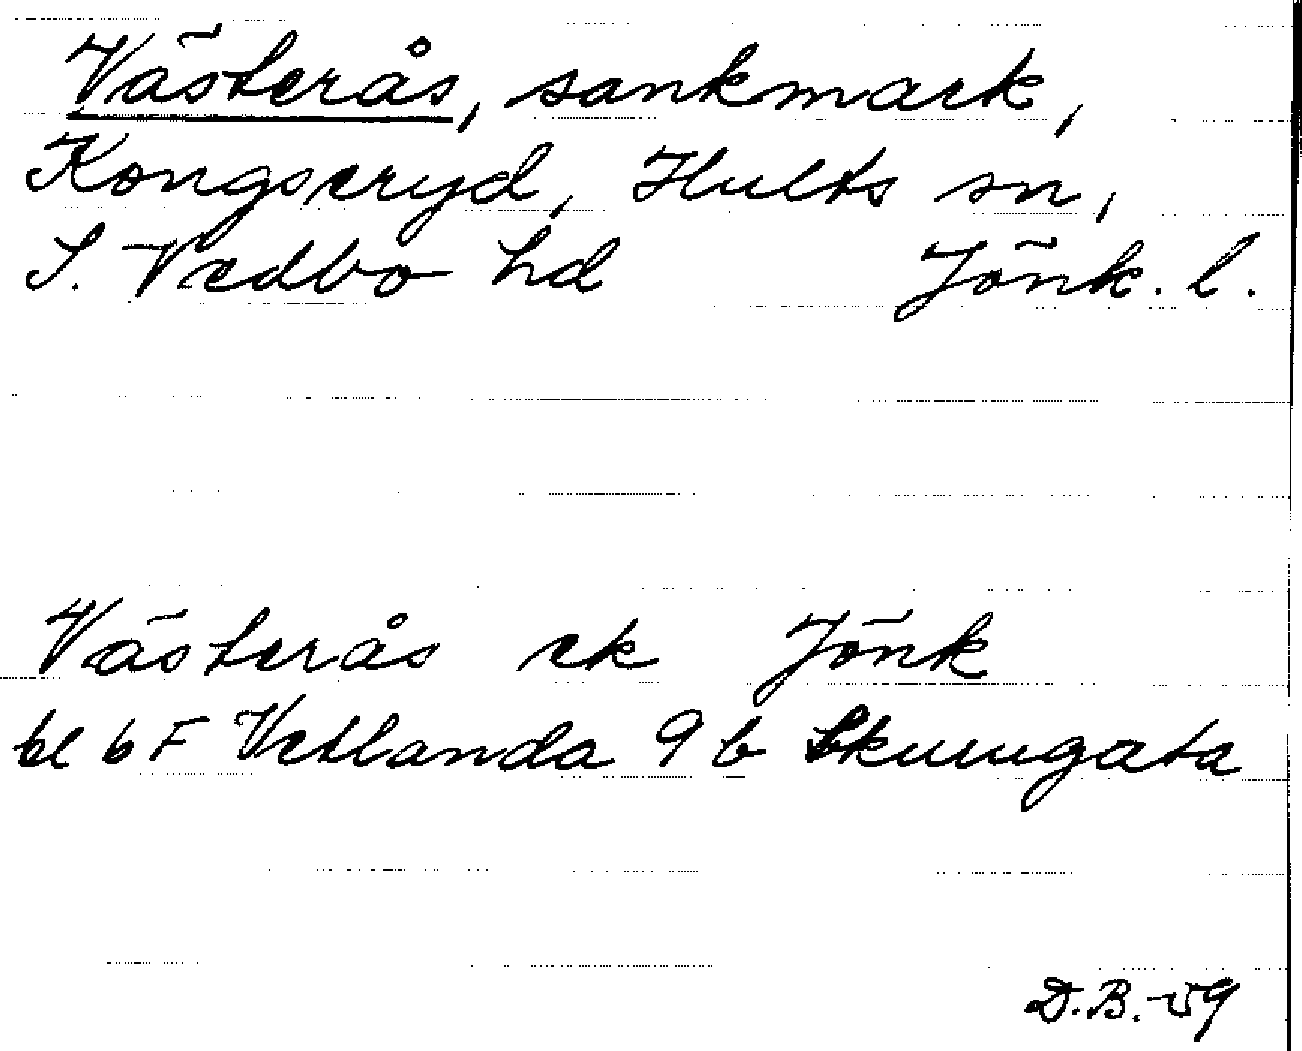 Västerås, sankmark,
Kongseryd, Hults sn,
S. Vedbo hd Jönk. l.
Västerås ek Jönk
bl 6 F Vetlanda 9 b Skurugata
D.B.-59